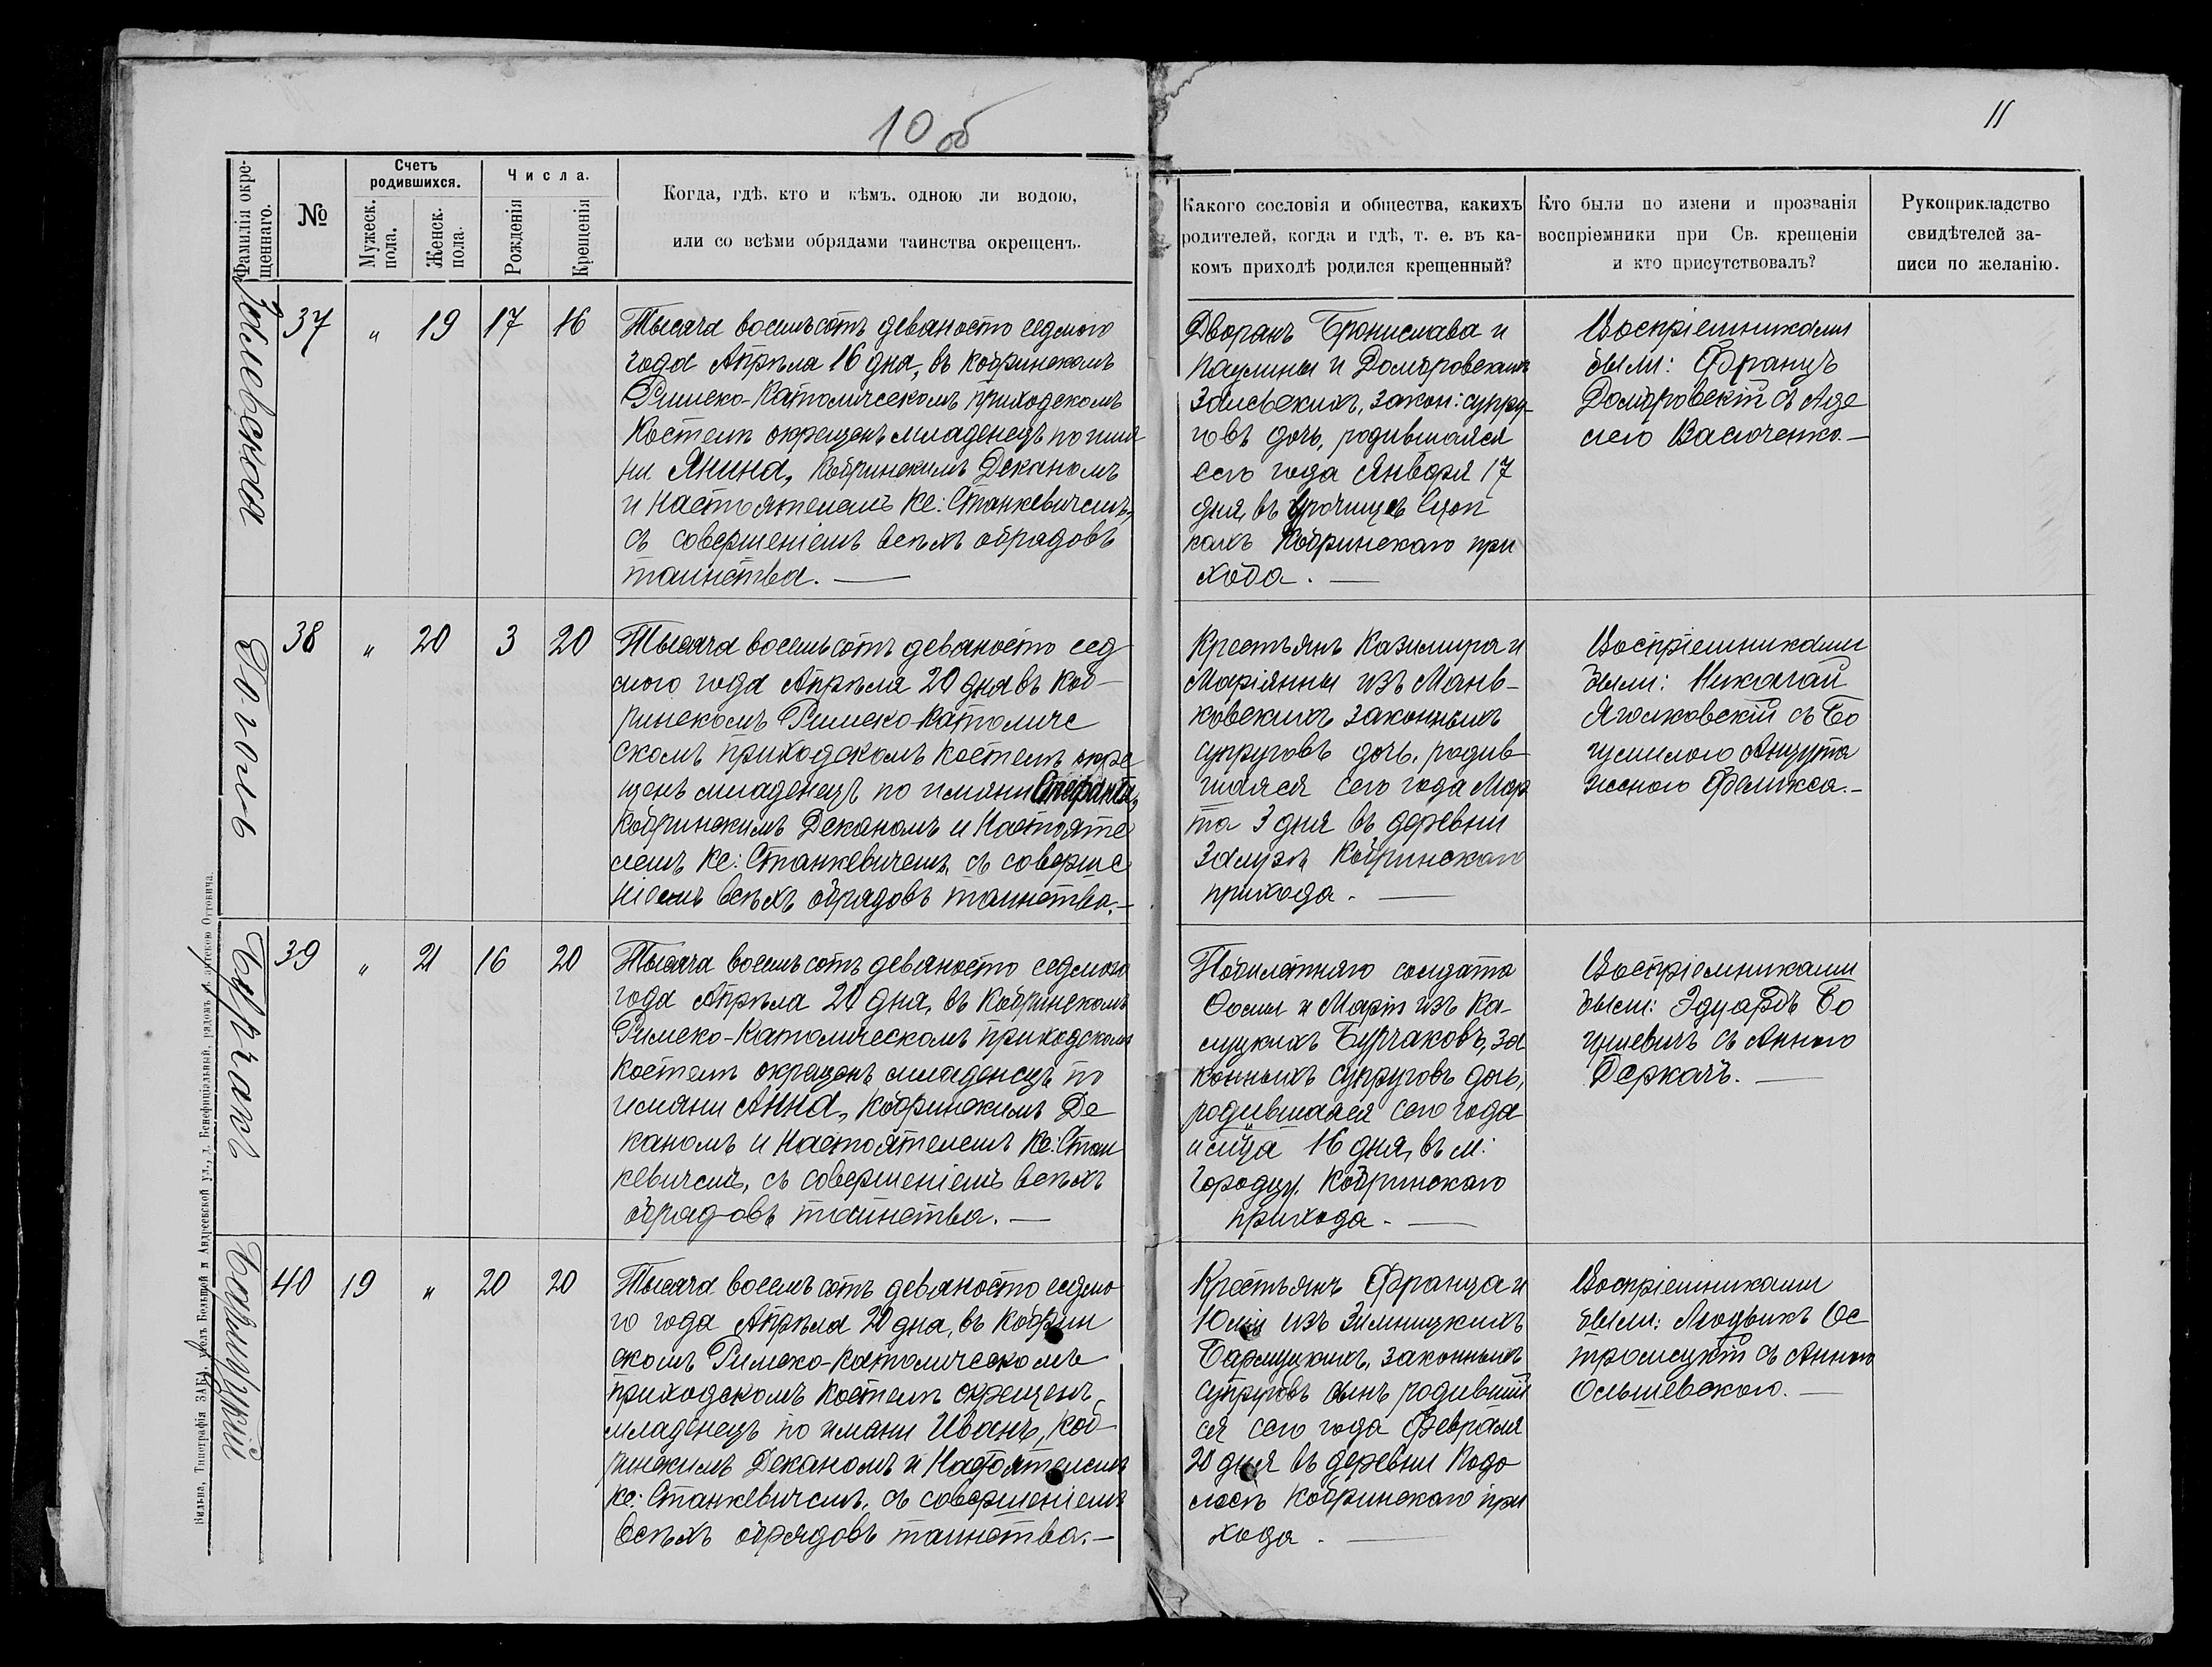 10 об
11
Фамилія окре-
щеннаго.
№
Счетъ
родившихся.
Мужеск.
пола.
Женск.
пола.
Числа.
Рожденія
Крещенія
Когда, гдѣ, кто и кѣмъ, одною ли водою,
или со всѣми обрядами таинства окрещенъ.
Какого сословія и общества, какихъ
родителей, когда и гдѣ, т. е. въ ка-
комъ приходѣ родился крещенный?
Кто были по имени и прозванія
воспріемники при Св. крещеніи
и кто присутствовалъ?
Рукоприкладство
свидѣтелей за-
писи по желанію.
37 " 19 17 16
Тысяча восемьсотъ девяносто седмого
года Апрѣля 16 дня, въ Кобринскомъ
Римско-Католическомъ приходскомъ
Костелѣ окрещенъ младенецъ по имя
ни Янина, Кобринскимъ Деканомъ
и Настоятелемъ Кс: Станкевичемъ,
съ совершеніемъ всѣхъ обрядовъ
таинства.—
Дворянъ Бронислава и
Паулины и Домбровскихъ
законн: супру-
говъ дочь, родившаяся
сего года Января 17
дня, въ урочищѣ
Кобринскаго при
хода.—
Воспріемниками
были: Францъ
Домбровскій съ Аде
лею Васюченко.—
Боголь
38 " 20 3 20
Тысяча восемьсотъ девяносто сед
мого года Апрѣля 20 дня въ Коб-
ринскомъ Римско-Католиче
скомъ приходскомъ Костелѣ окре
щенъ младенецъ по имяни
Кобринскимъ Деканомъ и Настояте
лемъ Кс: Станкевичемъ, съ соверше
ніемъ всѣхъ обрядовъ таинства.—
Крестьянъ Казимира и
Маріянны изъ Мань-
ковскихъ законныхъ
супруговъ дочь, родив-
шаяся сего года Мар
та 3 дня въ деревни
Кобринскаго
прихода.—
Воспріемниками
были: Николай
съ Бо
гумилою
женою Феликса.—
Бурчакъ
39 " 21 16 20
Тысяча восемьсотъ девяносто седмого
года Апрѣля 20 дня, въ Кобринскомъ
Римско-Католическомъ приходскомъ
Костелѣ окрещенъ младенецъ по
имяни Анна, Кобринскимъ Де
каномъ и Настоятелемъ Кс: Стан
кевичемъ, съ совершеніемъ всѣхъ
обрядовъ таинства.—
солдата
Осипа и Маріи изъ Ка-
луцкихъ Бурчаковъ, за
конныхъ супруговъ дочь,
родившаяся сего года
и м-ца 16 дня, въ м:
Городцу, Кобринскаго
прихода.—
Воспріемниками
были: Эдуардъ Бо
гушевичъ съ Анною
Деркачъ.—
40 19 " 20 20
Тысяча восемьсотъ девяносто седмо
го года Апрѣля 20 дня, въ Кобрин
скомъ Римско-Католическомъ
приходскомъ Костелѣ окрещенъ
младенецъ по имяни Иванъ, Коб-
ринскимъ Деканомъ и Настоятелемъ
Кс: Станкевичемъ, съ совершеніемъ
всѣхъ обрядовъ таинства.—
Крестьянъ Франца и
Юліи изъ Зимницкихъ
законныхъ
супруговъ сынъ родивший
ся сего года Февраля
20 дня въ деревни Подо
лѣсь Кобринскаго при
хода.—
Воспріемниками
были: Людвикъ Ос
тромецкій съ Анною
Ольшевскою.—